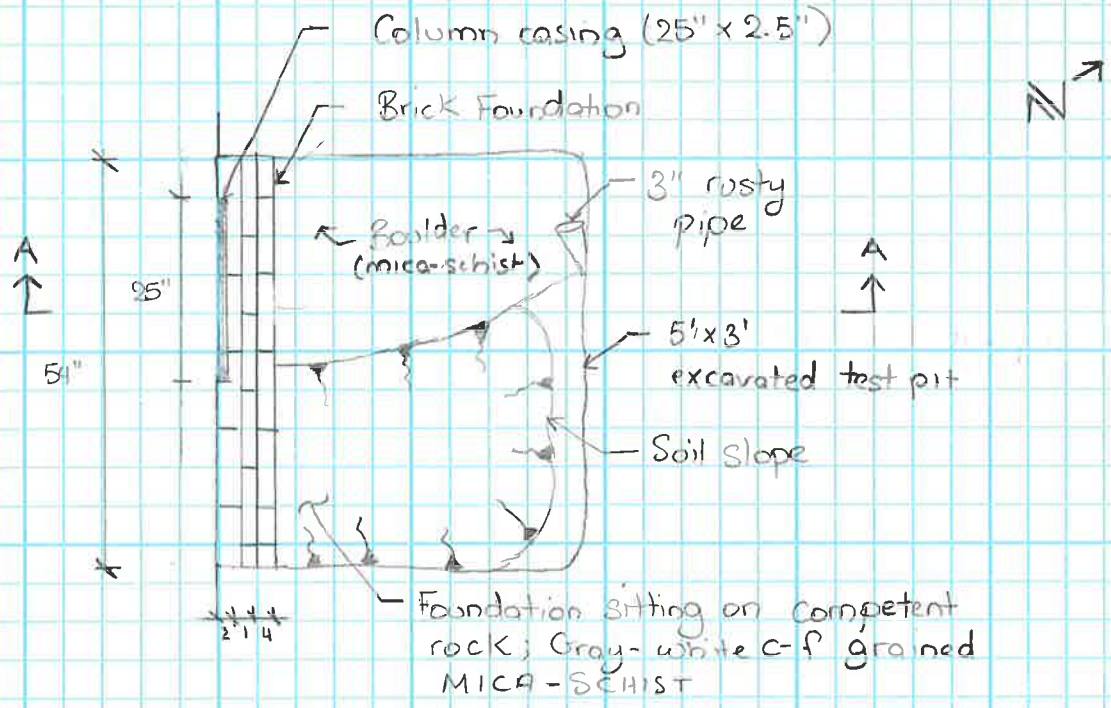 Column casing (25" x 2.5")
Brick Foundation
N
3" rusty
pipe
Boulder
(mica-schist)
A
A
25"
54"
5'x3'
excavated test pit
Soil Slope
2 1 4
Foundation sitting on competent
rock; Gray-white c-f grained
MICA-SCHIST